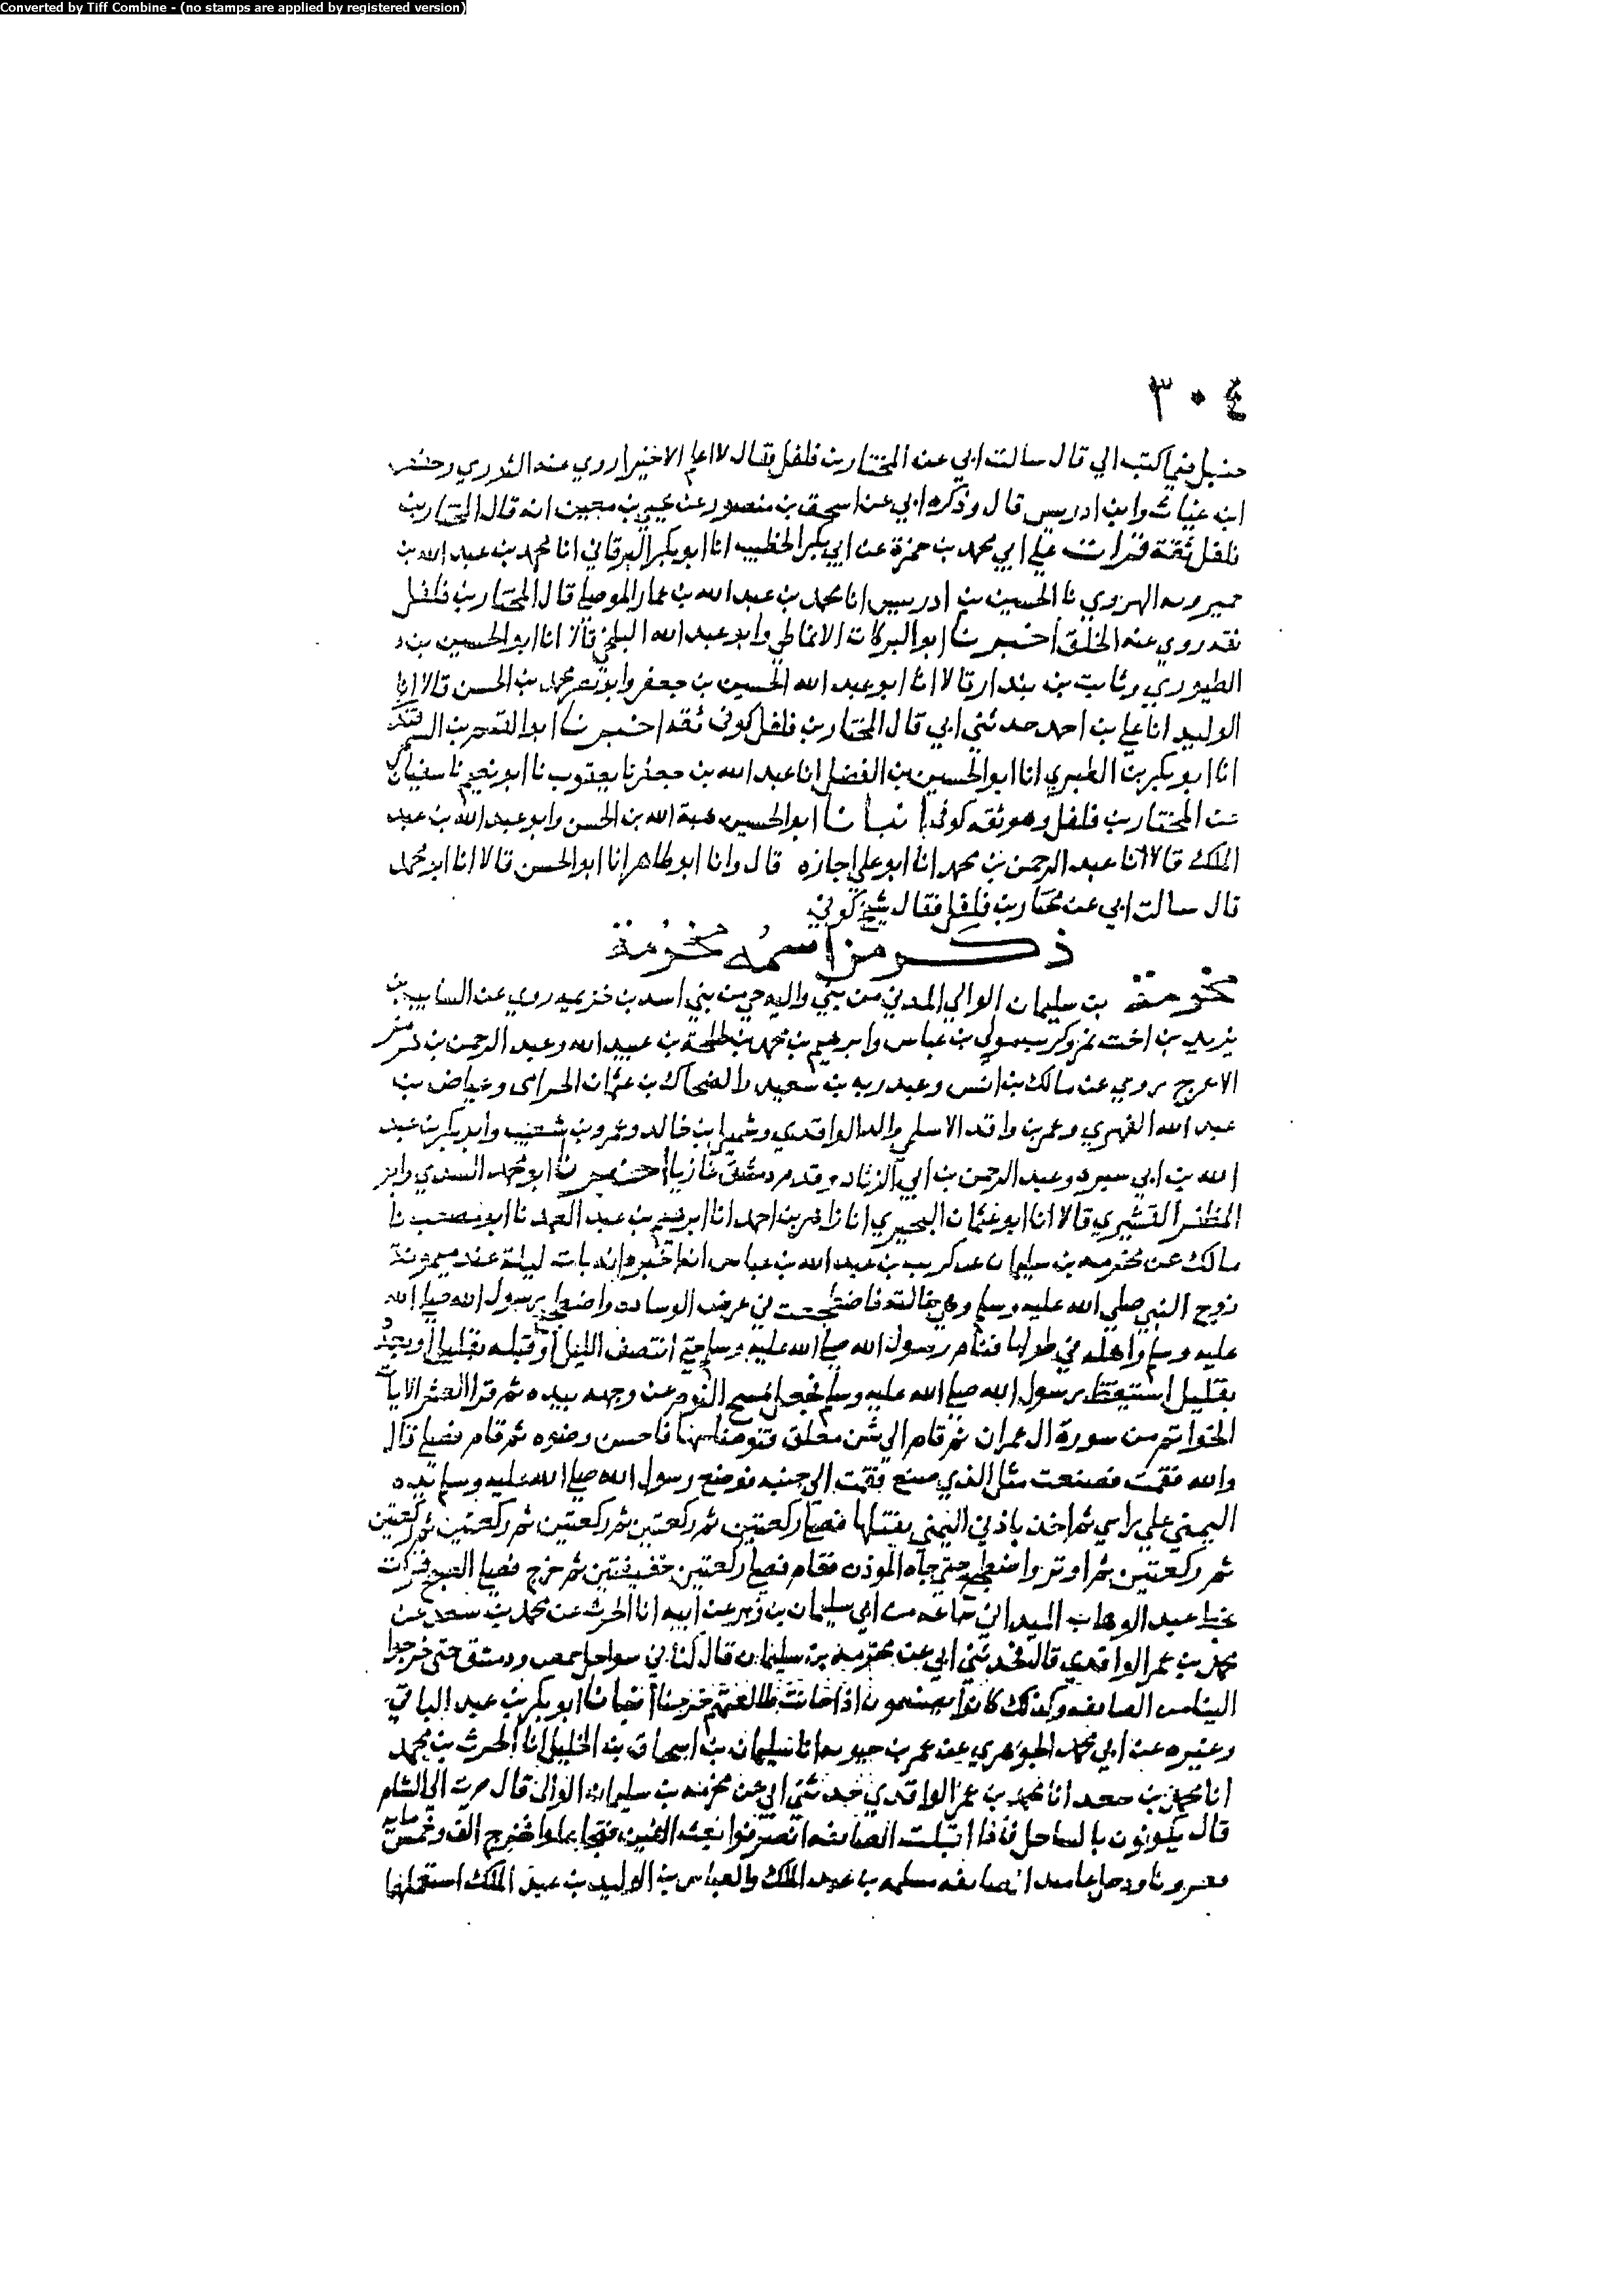 Converted by Tiff Combine - (no stamps are applied by registered version)
٣٠٤
حنبل فيما كتب الي قال سالت ابي عن المختار بن فلفل فقال لا اعلم الا خيرا روي عنه الثوري وحفص
ابن غياث وابن ادريس قال وذكره ابي عن اسحق بن منصور عن يحيى بن معين انه قال المختار بن
فلفل ثقة قرات علي ابي محمد بن حمزة عن ابي بكر الخطيب انا ابو بكر البرقاني انا محمد بن عبد الله بن
خميرويه الهروي نا الحسين بن ادريس انا محمد بن عبد الله بن عمار الموصلي قال المختار بن فلفل
نقد روي عنه الخلق اخبرنا ابو البركات الانماطي وابو عبد الله البلخي قالا انا ابو الحسين بن
الطيوري وثابت بن بندار قالا انا ابو عبد الله الحسين بن جعفر وابو نصر محمد بن الحسن قالا انا
الوليد انا علي بن احمد حدثني ابي قال المختار بن فلفل كوفي ثقه اخبرنا ابو القسم بن السمرقندي
انا ابو بكر بن الطبري انا ابو الحسين بن الفضل انا عبد الله بن جعفر نا يعقوب نا ابو نعيم نا سفيان
عن المختار بن فلفل وهو ثقه كوفي انبانا ابو الحسين هبة الله بن الحسن وابو عبد الله بن عبد
الملك قالا انا عبد الرحمن بن محمد انا ابو علي اجازه قال وانا ابو طاهر انا ابو الحسن قالا انا ابو محمد
قال سالت ابي عن مختار بن فلفل فقال شيخ كوفي
ذكر من اسمه مخرمة
مخرمة بن سليمان الوالبي المدني من بني والبه حي من بني اسد بن خزيمه روي عن السايب بن
يزيد بن اخت نمر وكريب مولي بن عباس وابرهيم بن محمد بن طلحة بن عبيد الله وعبد الرحمن بن هرمز
الاعرج روي عن مالك بن انس وعبد ربه بن سعيد والضحاك بن عثمان الحزامى وعياض بن
عبد الله الفهري وعمر بن واقد الاسلمي والد الواقدي وخالد وعمرو بن شعيب وابو بكر بن عبد
الله بن ابي سبره وعبد الرحمن بن ابي الزناد وقدم دمشق غازيا اخبرنا ابو محمد السيدي وابو
المظفر القشيري قالا انا ابو عثمان البحيري انا زاهر بن احمد انا ابرهيم بن عبد الصمد نا ابو مصعب نا
مالك عن مخرمه بن سليمان عن كريب بن عبد الله بن عباس انه اخبره انه بات ليلة عند ميمونة
زوج النبي صلي الله عليه وسلم وهي خالته فاضطجعت في عرض الوساده واضطجع رسول الله صلي الله
عليه وسلم واهله في طولها فنام رسول الله صلي الله عليه وسلم حتى انتصف الليل او قبله بقليل او بعده
بقليل استيقظ رسول الله صلي الله عليه وسلم فجعل يمسح النوم عن وجهه بيده ثم قرا العشر الايات
الخواتم من سورة ال عمران ثم قام الي شن معلق فتوضا منها فاحسن وضوه ثم قام فصلي قال
والله فقمت فصنعت مثل الذي صنع فقمت الي جنبه فوضع رسول الله صلي الله عليه وسلم يده
اليمني علي راسي ثم اخذ باذني اليمني يفتلها فصلي ركعتين ثم ركعتين ثم ركعتين ثم ركعتين ثم ركعتين
ثم ركعتين ثم اوتر واضطجع حتي جاه الموذن فقام فصلي ركعتين خفيفتين ثم خرج فصلي الصبح قرات
بخط عبد الوهاب الميداني سماعه من ابي سليمان بن زبر عن ابيه انا الحرث عن محمد بن سعد عن
محمد بن عمر الواقدي قال فحدثني ابي عن مخرمه بن سليمان قال كنا في سواحل حمص ودمشق حتى خرجوا
الناس الصايفه وكذلك كانوا يصنعون اذا خرجنا انبانا ابو بكر بن عبد الباقي
وغيره عن ابي محمد الجوهري عن عمر بن حيويه انا سليمان بن اسحاق بن الخليل انا الحرث بن محمد
انا محمد بن سعد انا محمد بن عمر الواقدي حدثني ابي عن مخرمه بن سليمان الوالبي قال الي الشام
قال يكونون بالساحل فاذا اقبلت الصايفه انصرفوا الفين فخرج الف وخمس مايه
الصايفه مسلمه بن عبد الملك والعباس بن الوليد بن عبد الملك